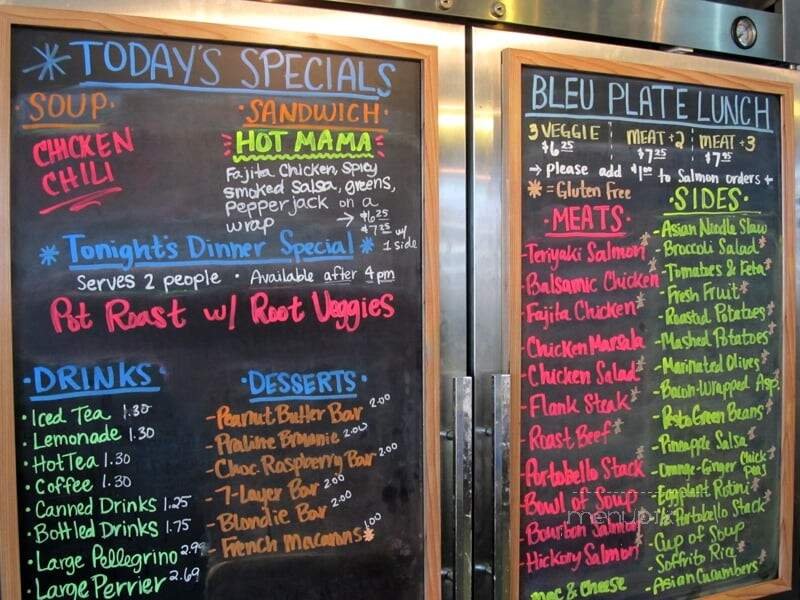 TODAY'S SPECIALS
SOUP
CHICKEN
CHILI
SANDWICH
HOT MAMA
Fajita Chicken, spicy
smoked salsa, greens,
pepperjack on a
wrap → $6.25
$7.25 w/
1 side
Tonight's Dinner Special
Serves 2 people · Available after 4pm
Pot Roast w/ Root Veggies
DRINKS
Iced Tea 1.30
Lemonade 1.30
Hot Tea 1.30
Coffee 1.30
Canned Drinks 1.25
Bottled Drinks 1.75
Large Pellegrino 2.99
Large Perrier 2.69
DESSERTS
-Peanut Butter Bar 2.00
-Praline Brownie 2.00
-Choc Raspberry Bar 2.00
-7-Layer Bar 2.00
-Blondie Bar 2.00
-French Macarons 1.00
BLEU PLATE LUNCH
3 VEGGIE
$6.25
MEAT+2
$7.25
MEAT+3
$7.95
→ please add $1.00 to Salmon orders ←
* = Gluten Free
MEATS
-Teriyaki Salmon*
-Balsamic Chicken*
-Fajita Chicken*
-Chicken Marsala
-Chicken Salad*
-Flank Steak*
-Roast Beef*
-Portobello Stack
-Bowl of Soup
-Bourbon Salmon
-Hickory Salmon*
Mac & Cheese
SIDES
-Asian Noodle Slaw
-Broccoli Salad*
-Tomatoes & Feta*
-Fresh Fruit*
-Roasted Potatoes*
-Mashed Potatoes*
-Marinated Olives*
-Bacon-Wrapped Asp.*
-Pesto Green Beans*
-Pineapple Salsa*
-Orange-Ginger Chick peas
-Eggplant Rotini*
-Portobello Stack*
-Cup of Soup
-Soffrito Rice*
-Asian Cucumbers*
menupix